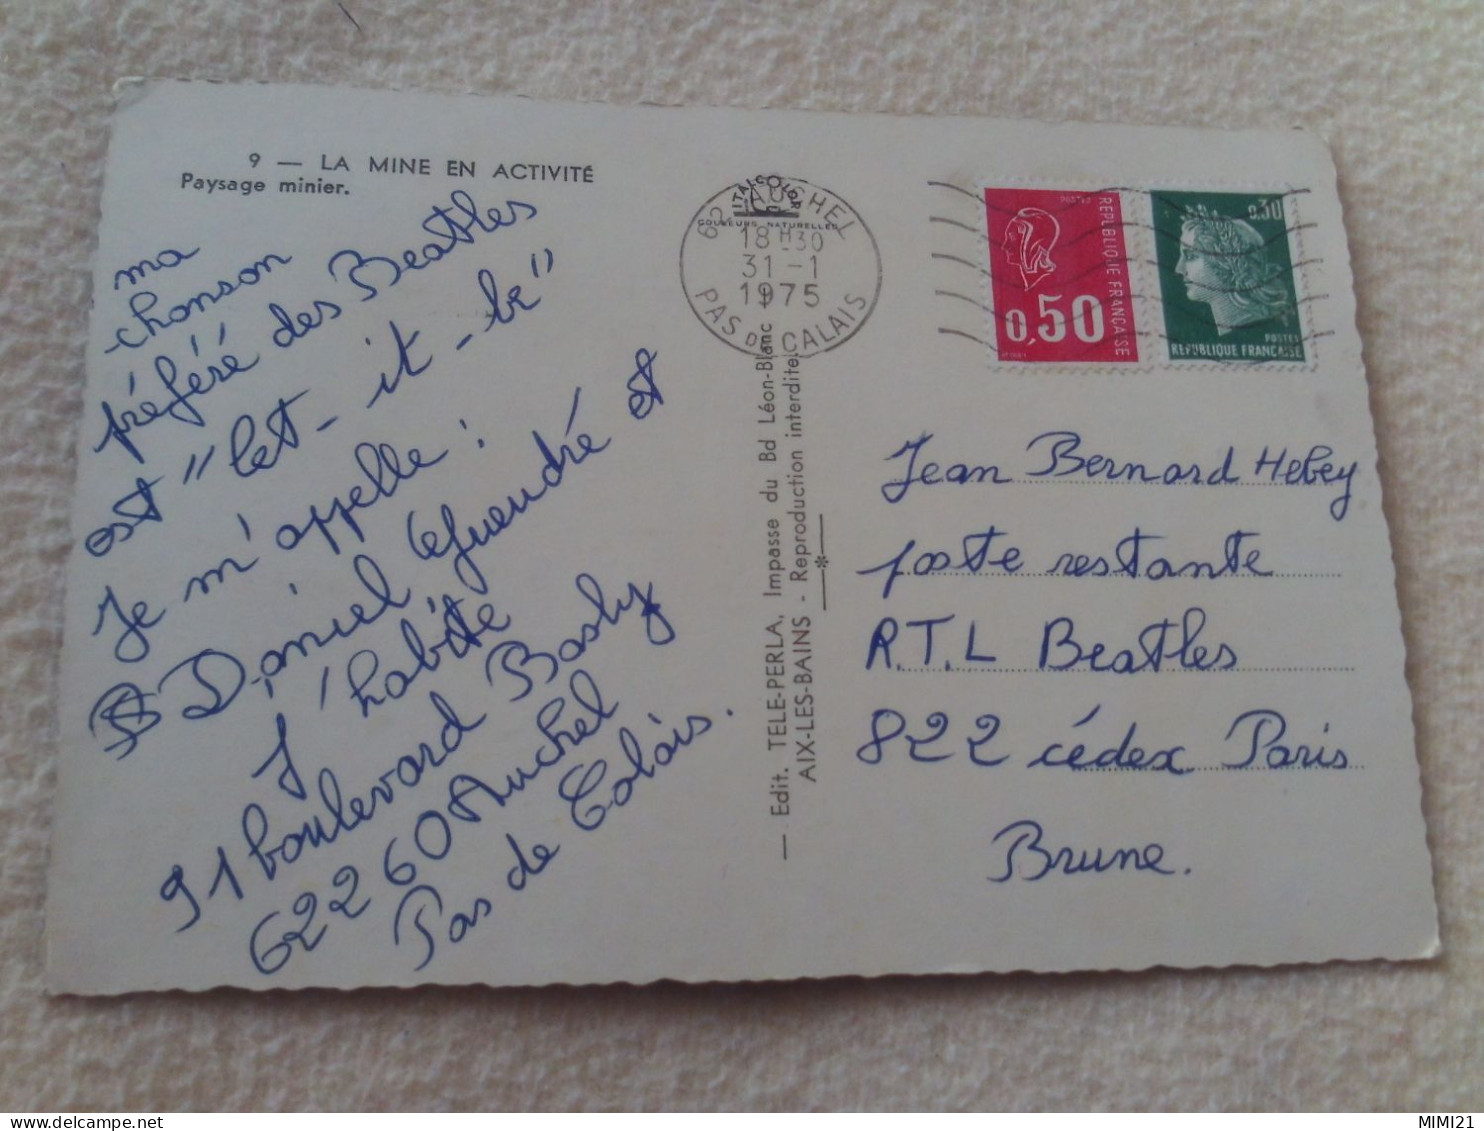 9 — LA MINE EN ACTIVITÉ
Paysage minier.
ma
chanson
préféré des Beatles
est "let-it-be"
Je m'appelle :
Daniel et
J'habite
91 boulevard Basly
62260 Auchel
Pas de Calais.
— Edit. TELE-PERLA, Impasse du Bd Léon-Blanc
AIX-LES-BAINS - Reproduction interdite.
ITALCOLOR
COULEURS NATURELLES
62 AUCHEL
18 H 30
31 - 1
1975
PAS DE CALAIS
POSTES
REPUBLIQUE FRANÇAISE
0,50
0,30
POSTES
REPUBLIQUE FRANÇAISE
Jean Bernard Hebey
poste restante
R.T.L Beatles
822 cédex Paris
Brune.
MIMI21